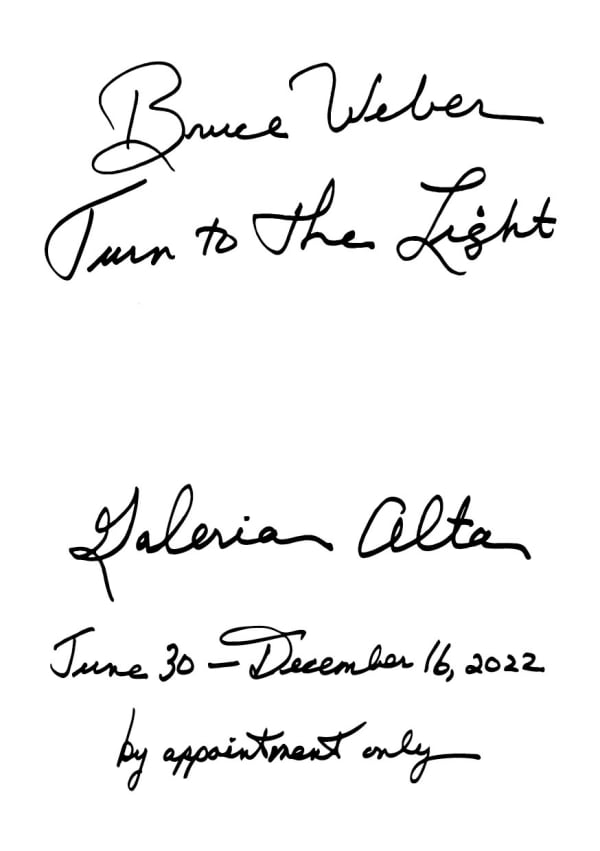 Bruce Weber
Turn to the Light
Galeria Alta
June 30 – December 16, 2022
by appointment only